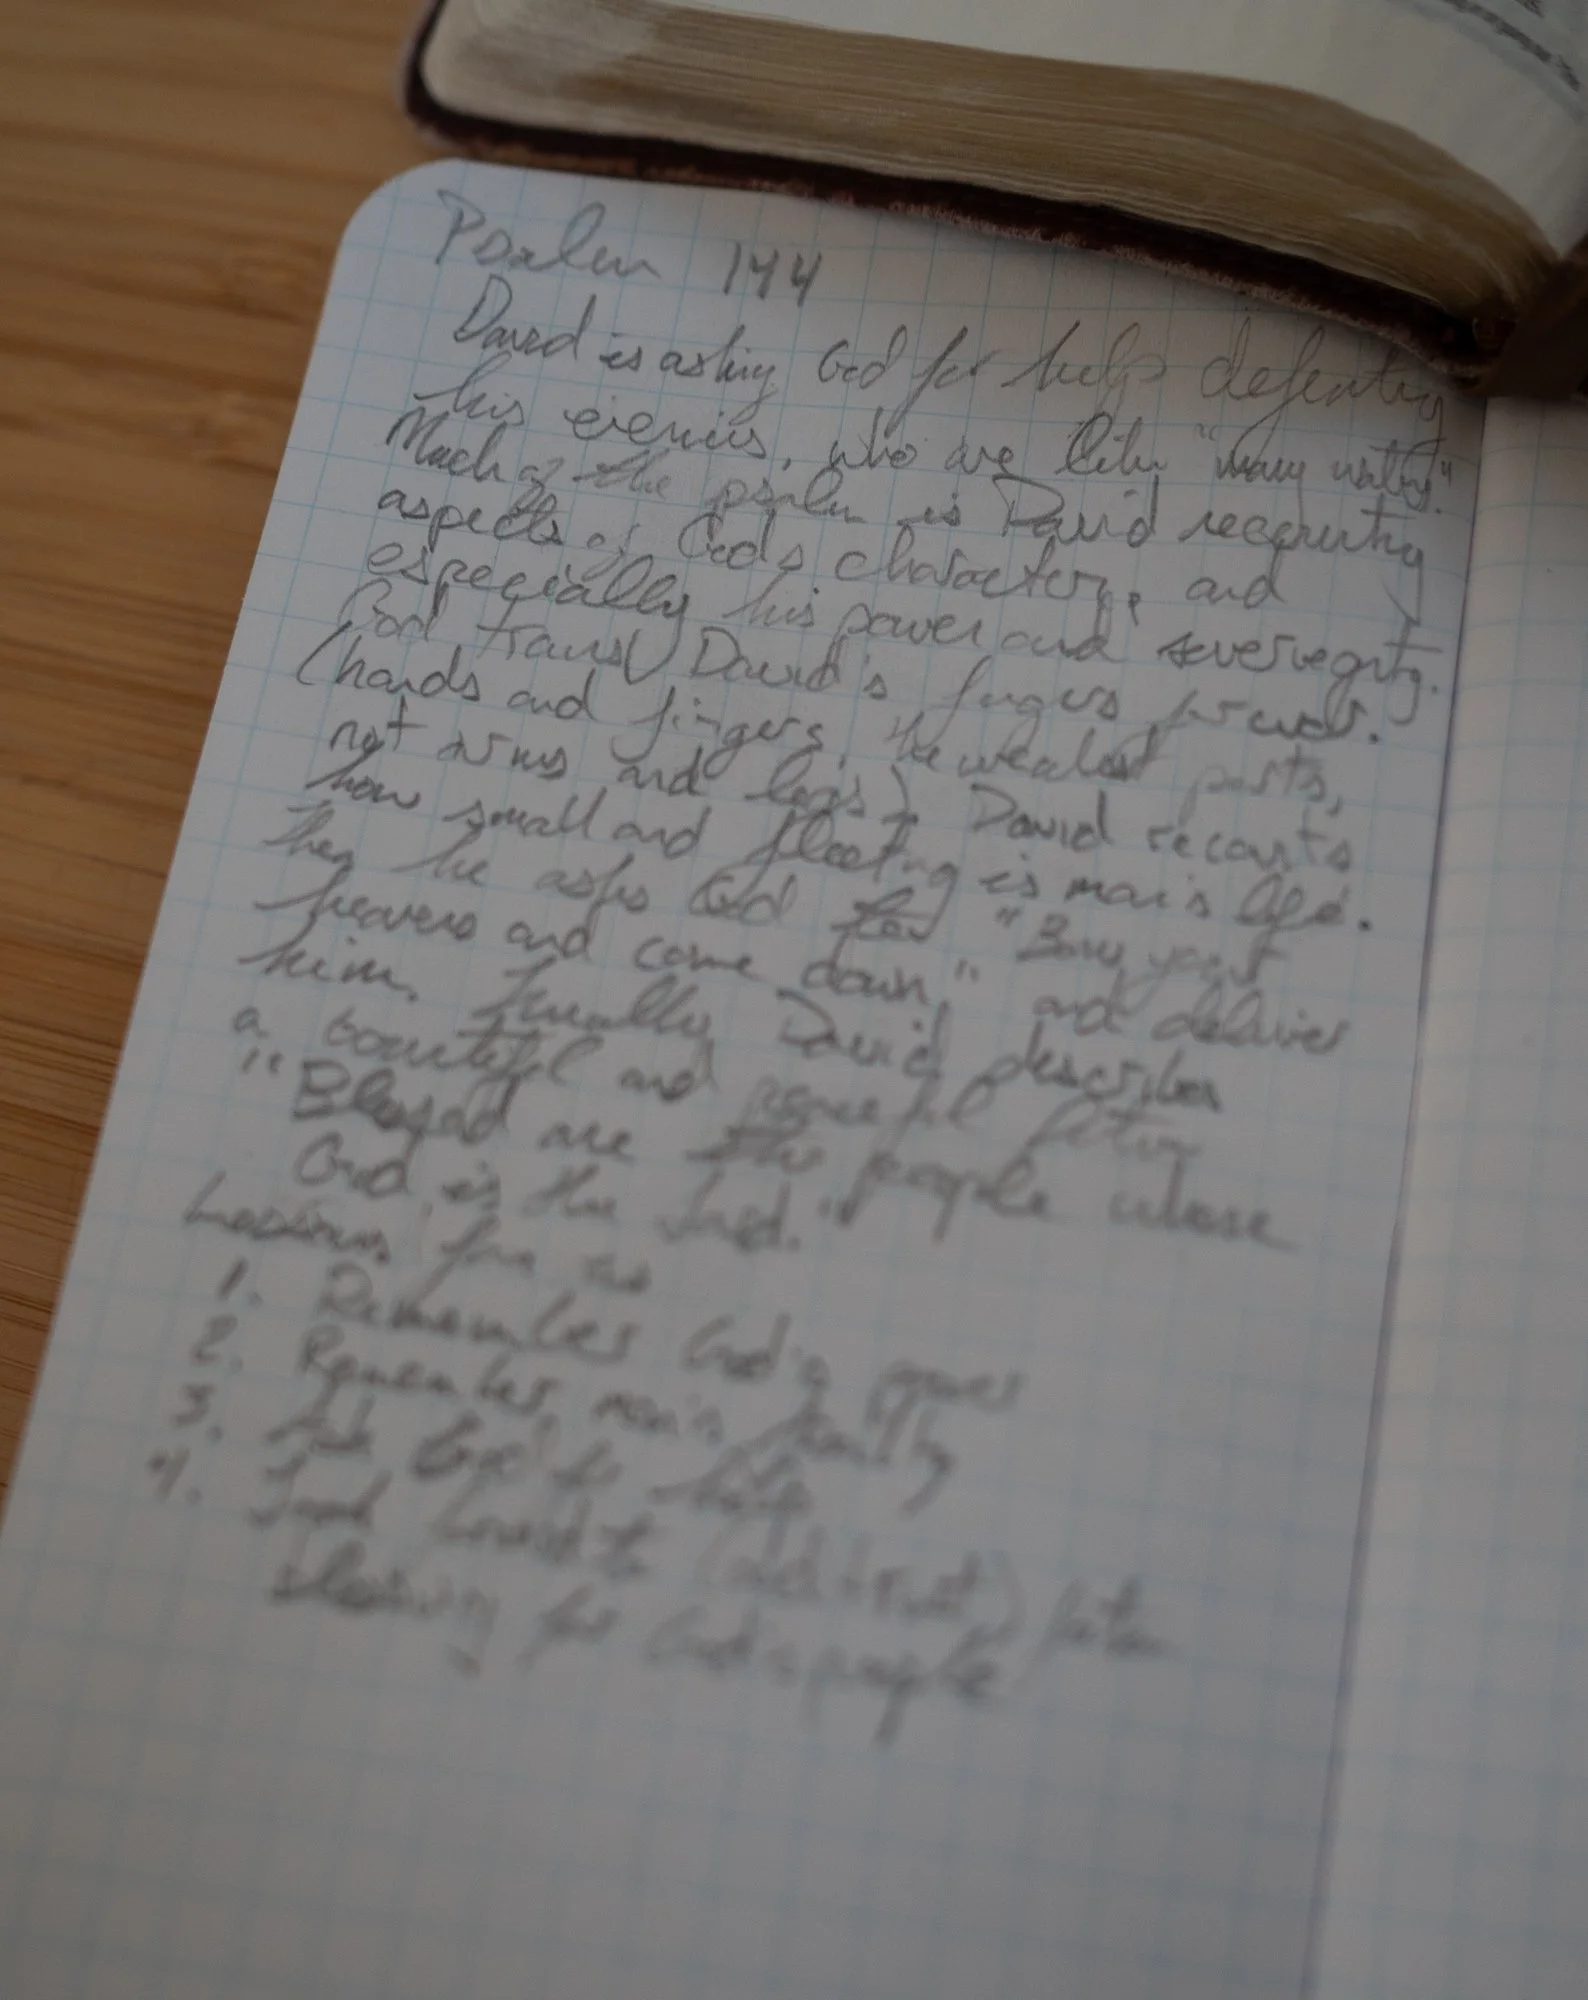 Psalm 144
David is asking God for help defeating
his enemies, who are like "many waters."
Much of the psalm is David recounting
aspects of God's character, and
especially his power and sovereignty.
God trains David's fingers for war.
(hands and fingers, the weakest parts,
not arms and legs) David recounts
how small and fleeting is man's life.
then he asks God "Bow your
heavens and come down," and deliver
him. Finally David describes
a bountiful and peaceful future
"Blessed are the people whose
God is the Lord."
Lessons for
1. Remember God's power
2. Remember man's frailty
3. Ask God for help
4. Look forward to future
blessing for God's people